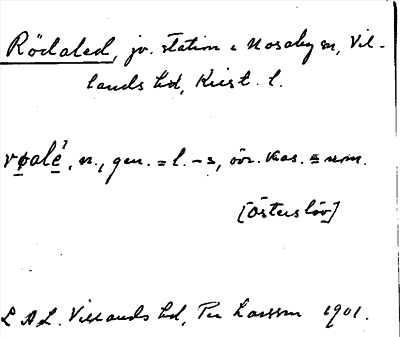 Rödaled, jv. station i Nosaby sn, Vil-
lands hd, Krist. l.
vøalé, n., gen. = l. -s, övr. kas. = nom.
[Österslöv]
L A L. Villands hd, Per Larsson 1901.